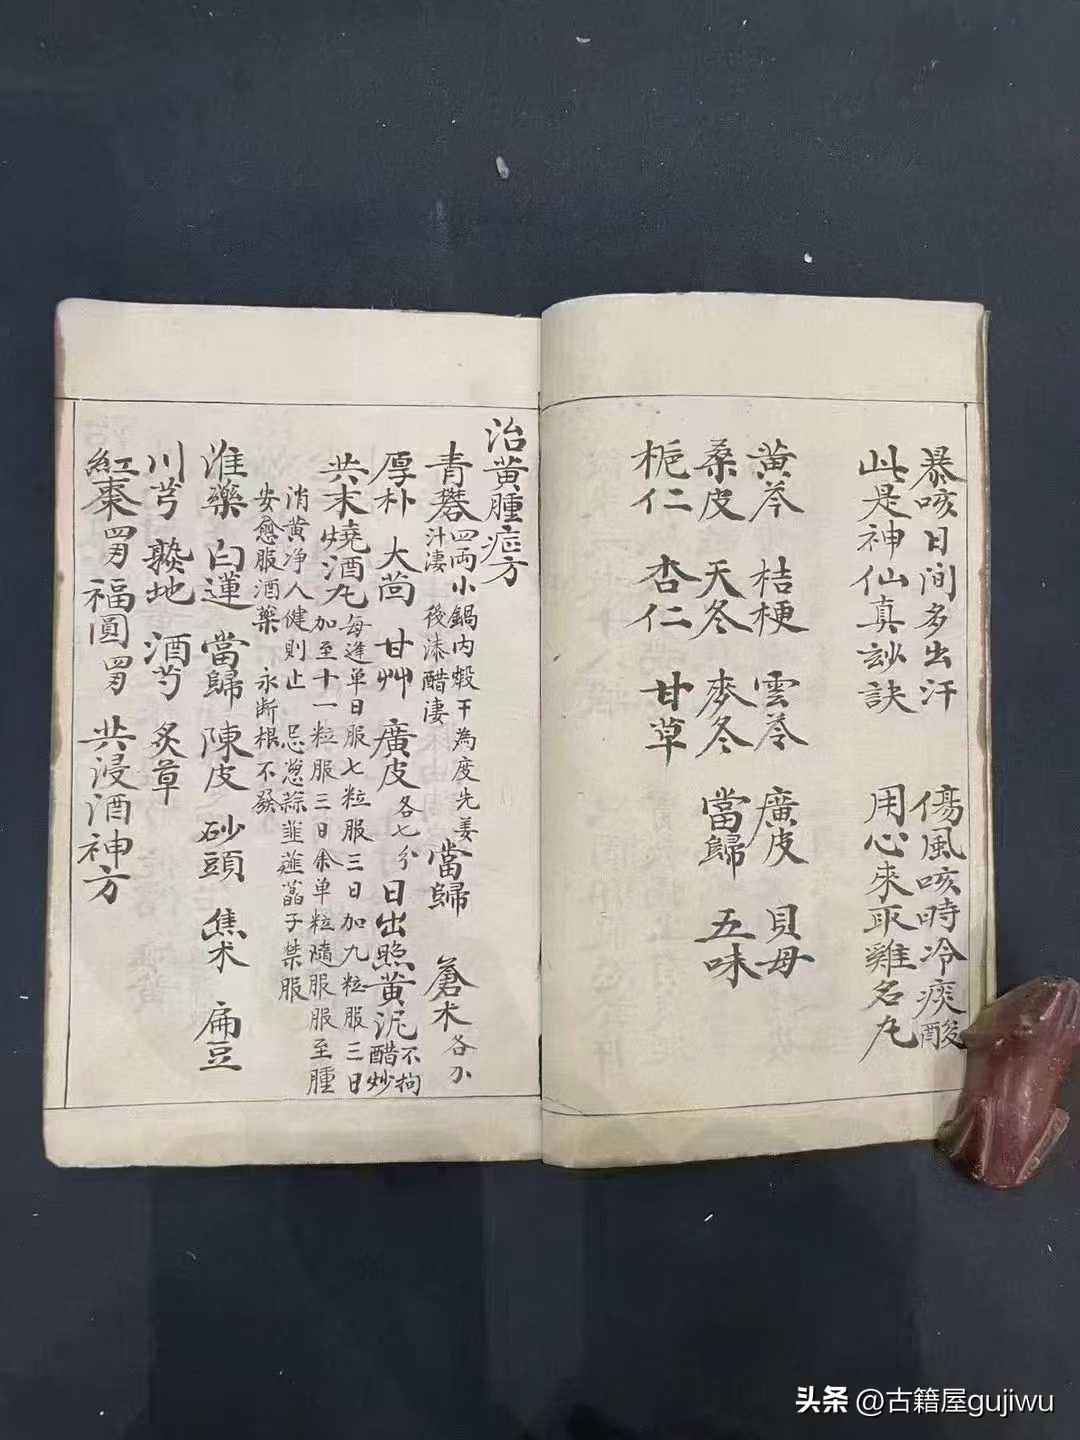 暴咳日间多出汗 傷風咳時冷痰酸
此是神仙真訣 用心來取雞名丸
黄芩 桔梗 雲苓 廣皮 貝母
桑皮 天冬 麥冬 當歸 五味
栀仁 杏仁 甘草
治黄腫症方
青礬四両小鍋内煅干為度先姜汁淒後漆醋淒 當歸 蒼术各
厚朴 大茴 甘艸 廣皮各七分日出照黄泥不拘醋炒
共末燒酒丸每逢单日服七粒服三日加九粒服三日
加至十一粒服三日余单粒隨服服至腫
消黄净人健則止 忌葱蒜韮薤子禁服
安愈服酒藥 永断根不發
淮藥 白蓮 當歸 陳皮 砂頭 焦术 扁豆
川芎 熟地 酒芍 炙草
紅棗 福圓 共浸酒神方
头条 @古籍屋gujiwu